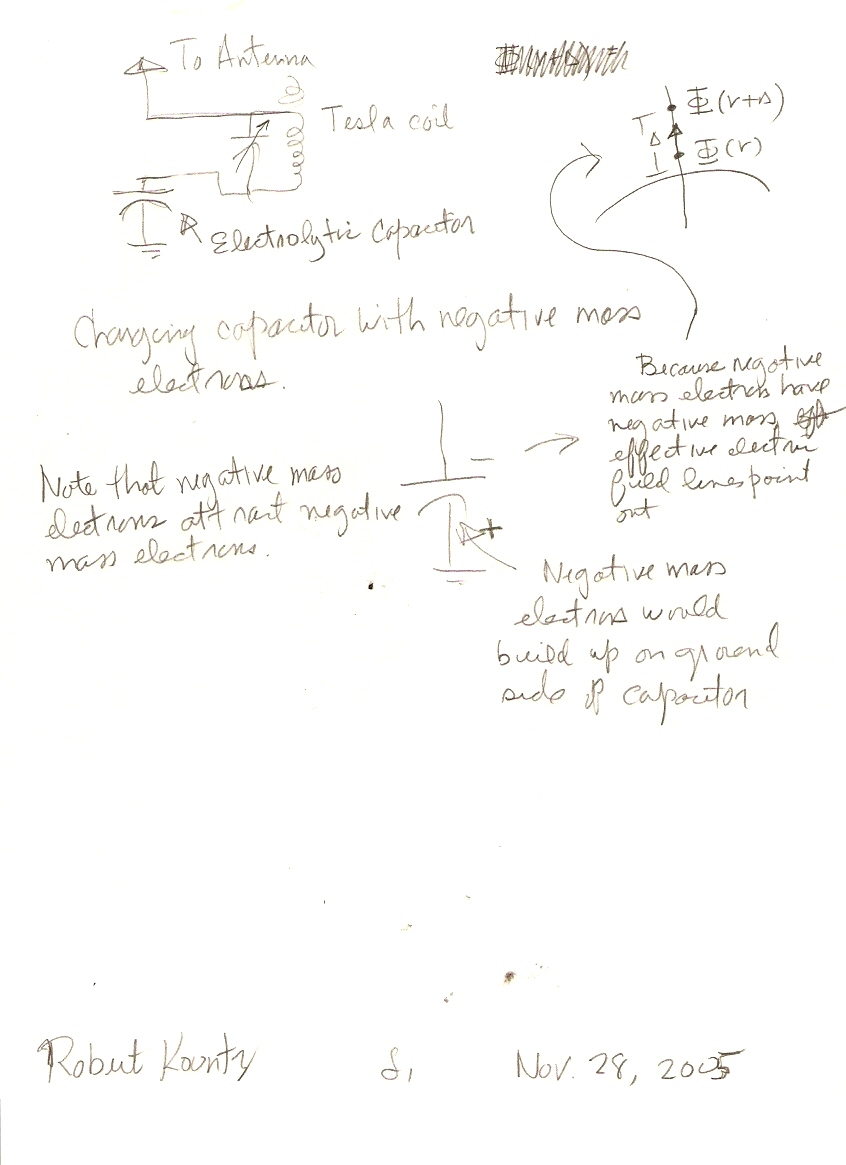 To Antenna
Tesla coil
Electrolytic Capacitor
Φ(r+Δ)
Δ
Φ(r)
Charging capacitor with negative mass
electrons.
Because negative
mass electrons have
negative mass,
effective electric
field lines point
out
Note that negative mass
electrons attract negative
mass electrons.
−
+
Negative mass
electrons would
build up on ground
side of capacitor
Robert Kountz
Nov. 28, 2005